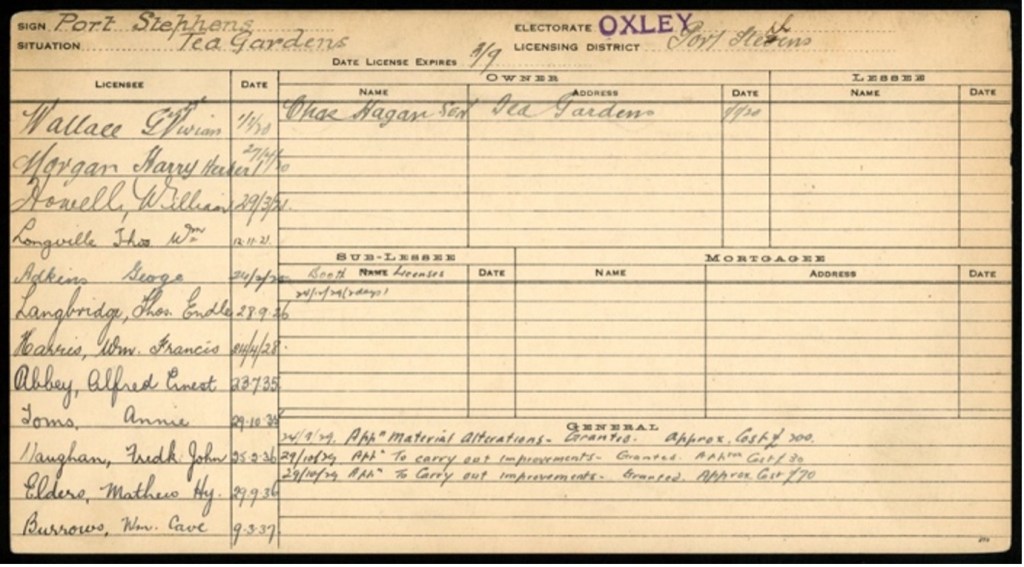 SIGN Port Stephens
ELECTORATE OXLEY
SITUATION Tea Gardens
LICENSING DISTRICT Port Stephens
DATE LICENSE EXPIRES 3/9
LICENSEE DATE
OWNER
NAME ADDRESS DATE
LESSEE
NAME DATE
Wallace Vivian 1/1/20
Chas Hagan Senr Tea Gardens
Morgan Harry Herbert 27/4/20
Howell, William 29/3/21.
Longville Thos Wm 12.11.21.
SUB-LESSEE
Booth NAME Licenses DATE
MORTGAGEE
NAME ADDRESS DATE
Adkins George
24/12/29 (2 days)
Langbridge, Thos. 28.9.26
Harris, Wm. Francis 24/4/28.
Abbey, Alfred Ernest 23.7.35
Toms, Annie 29.10.35
GENERAL
24/9/29. Appn Material Alterations - Granted. Approx. Cost £ 200.
Vaughan, Fredk John 25.2.36
29/10/29 Appn To carry out improvements - Granted. Approx Cost £ 30
29/10/29 Appn To Carry out improvements. Granted. Approx Cost £70
Elders, Mathew Hy. 29.9.36
Burrows, Wm. Cave 9.3.37.